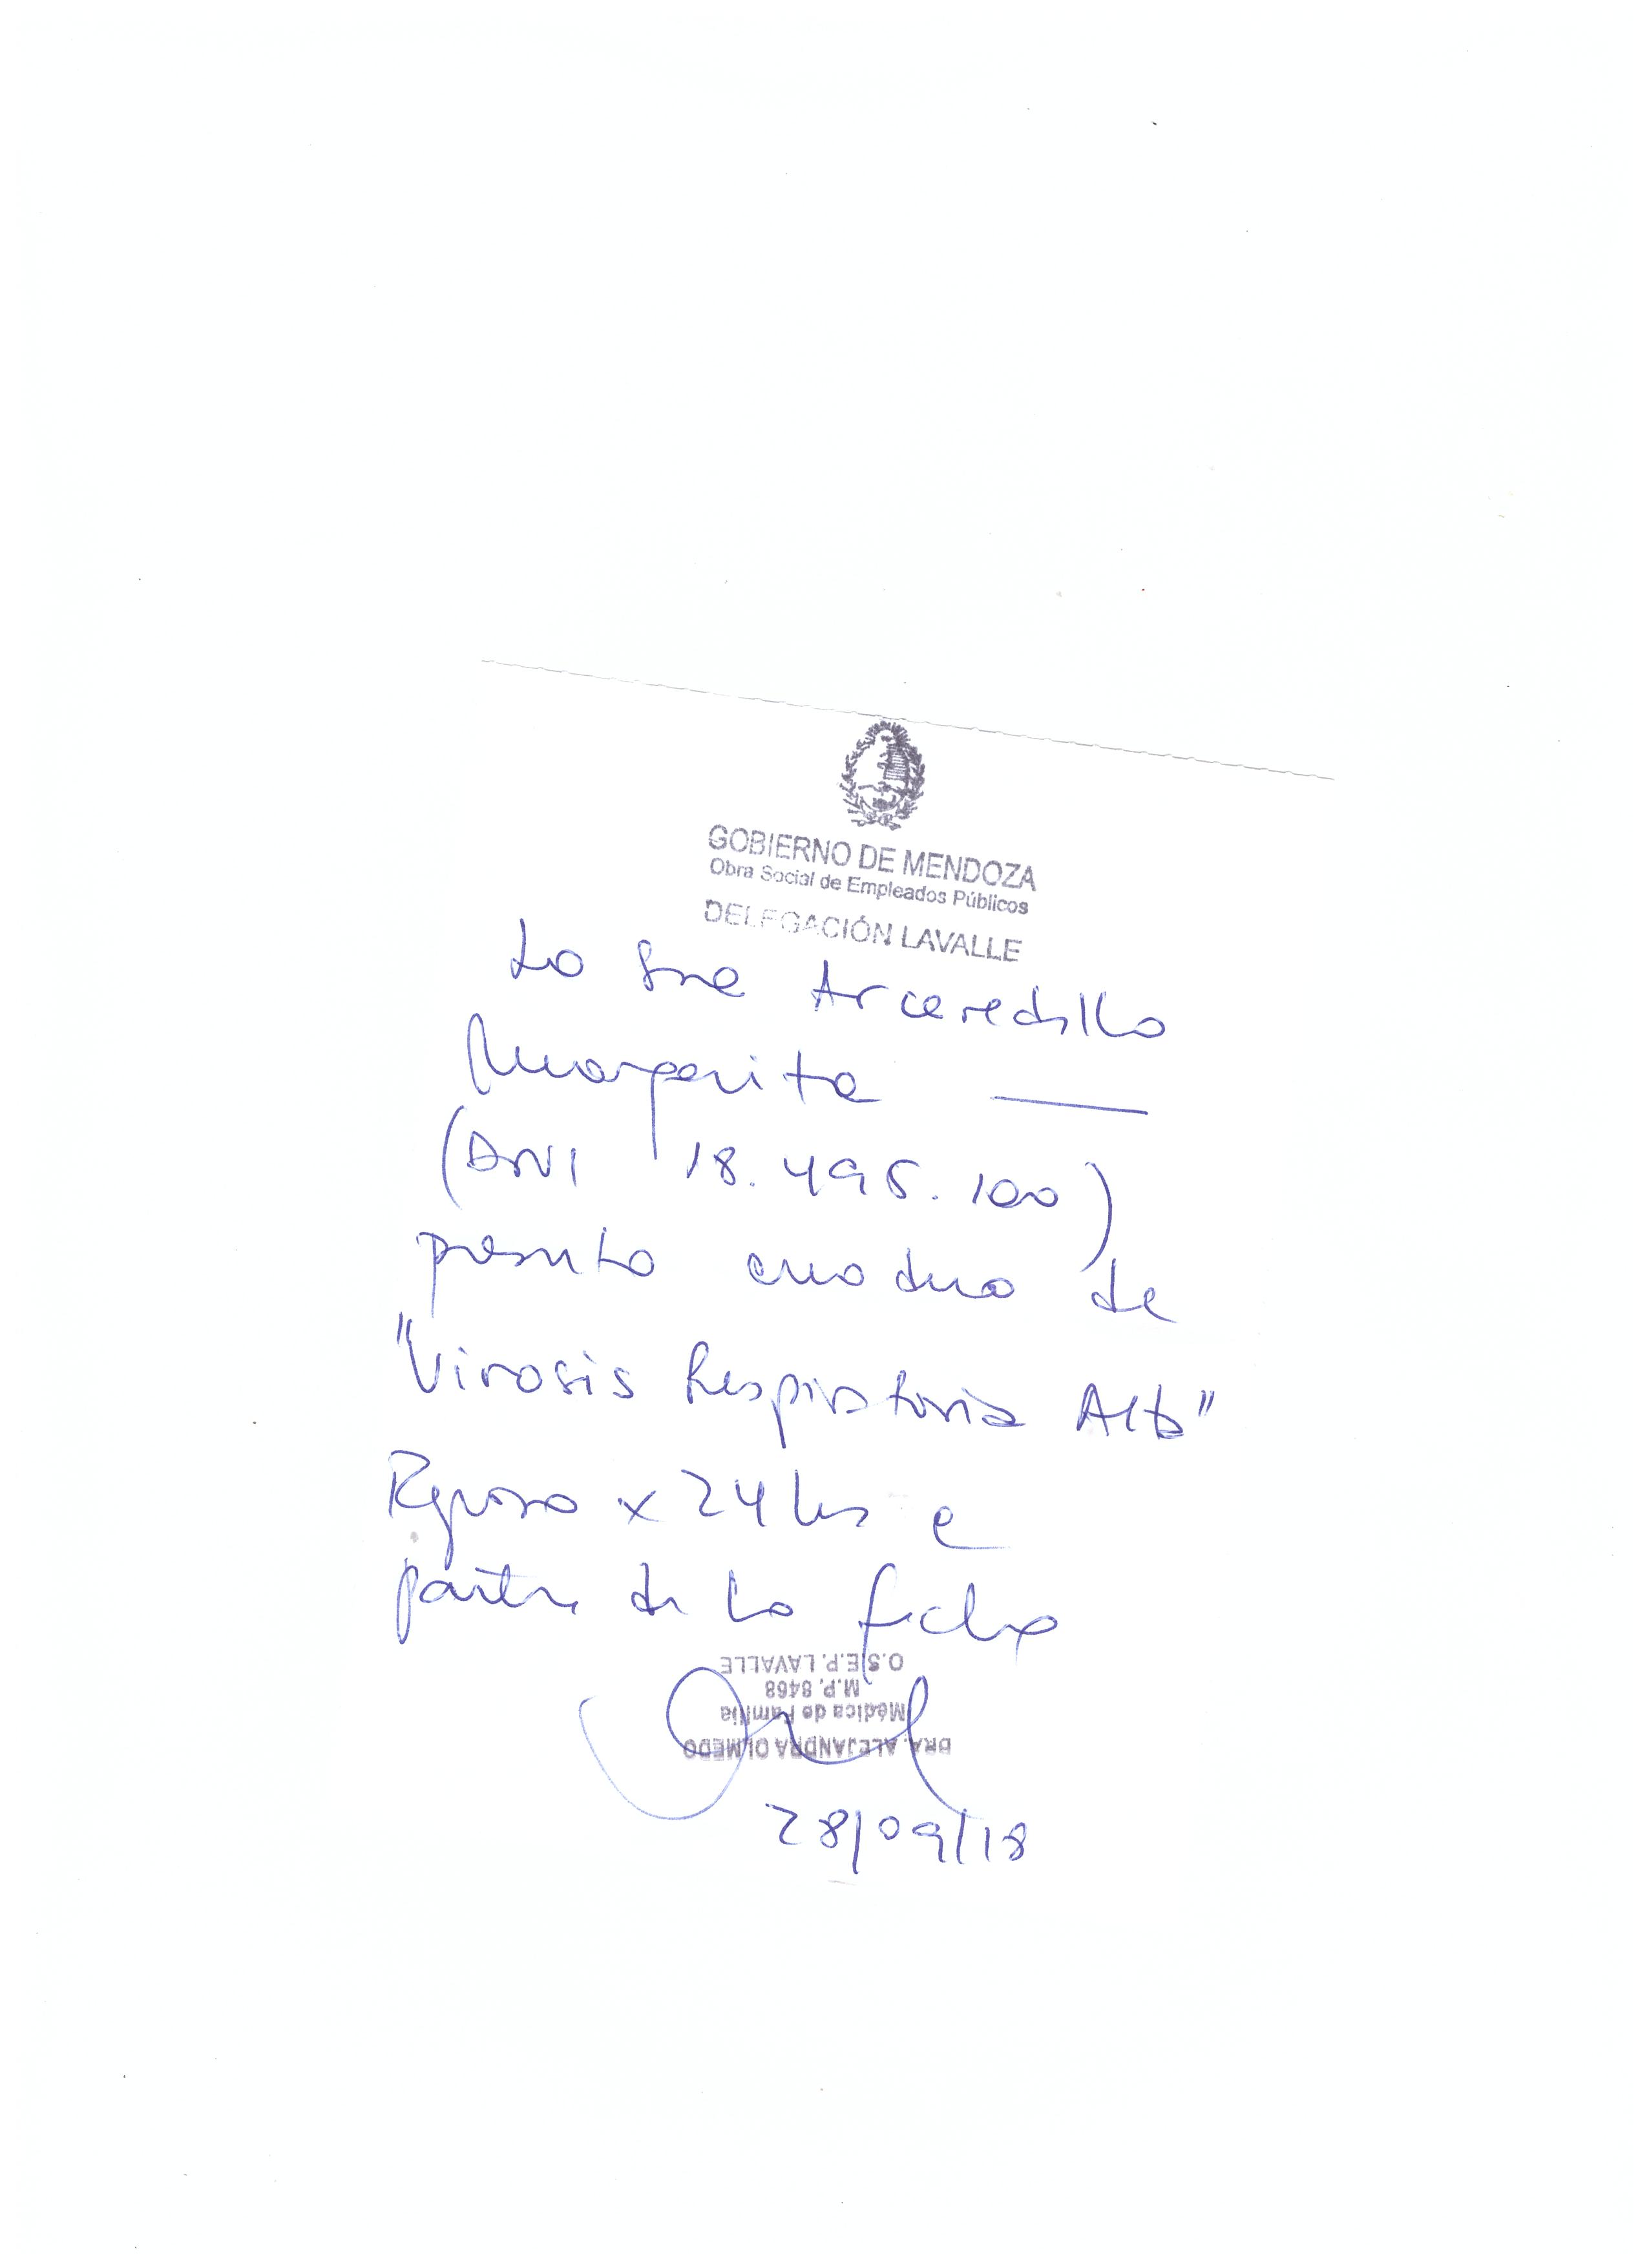 GOBIERNO DE MENDOZA
Obra Social de Empleados Públicos
DELEGACIÓN LAVALLE
La Sra Arceredillo
Margarita
(DNI 18.495.100)
presenta cuadro de
"Virosis Respiratoria Alta"
Reposo x 24 hs a
partir de la fecha
O.S.E.P. LAVALLE
M.P. 8468
Médica de Familia
DRA. ALEJANDRA OLMEDO
28/09/18